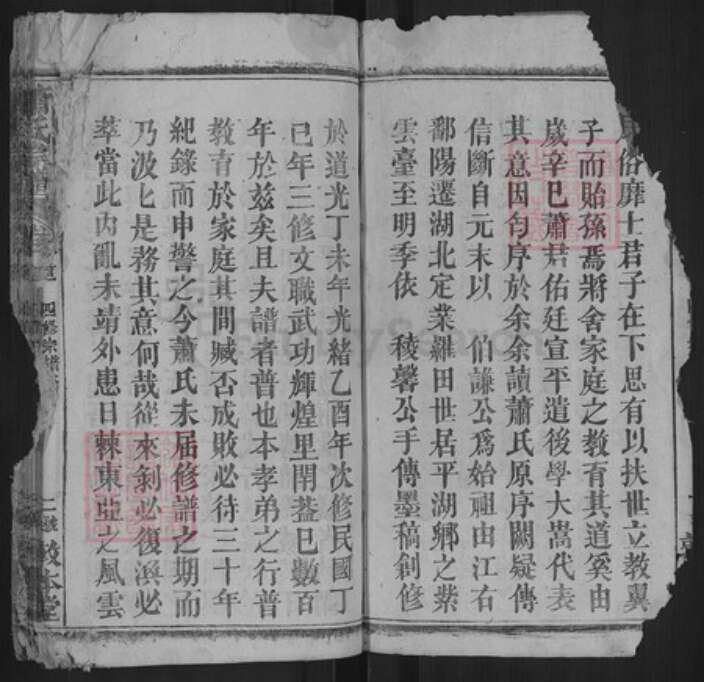 俗靡士君子在下思有以扶世立教翼
子而貽孫焉將舍家庭之教有其道奚由
歲辛巳蕭君佑廷宣平遣後學大嵩代表
其意因匄序於余余讀蕭氏原序闕疑傳
信斷自元末以 伯謙公爲始祖由江右
鄱陽遷湖北定業雞田世居平湖鄉之柴
雲臺至明季依 稜馨公手傳墨稿創修
於道光丁未年光緒乙酉年次修民國丁
巳年三修文職武功輝煌里閈葢已數百
年於茲矣且夫譜者普也本孝弟之行普
教育於家庭其間臧否成敗必待三十年
紀錄而申警之今蕭氏未届修譜之期而
乃汲匕是務其意何哉從來剝必復渙必
萃當此內亂未靖外患日棘東亞之風雲
四修宗譜
敦本堂